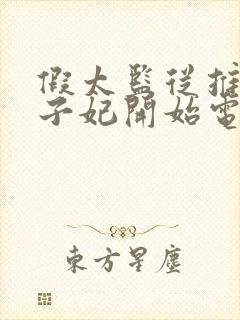 假太監從推
子妃開始電
東方星塵